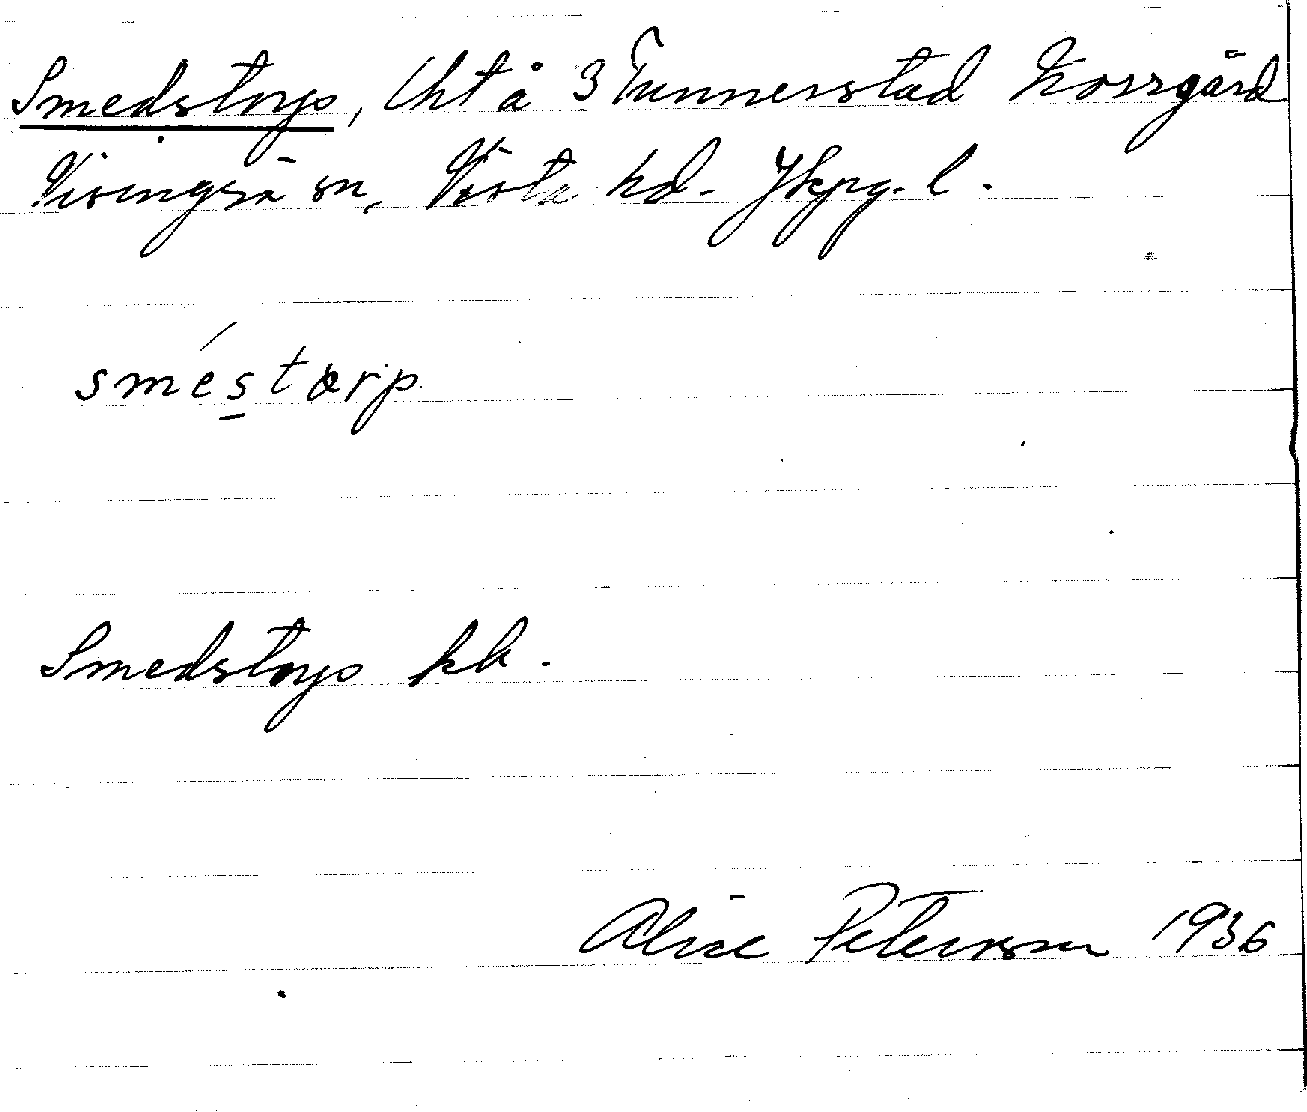 Smedstorp, lht å 3 Tunnerstad Norrgård
Visingsö sn, Vista hd. Jkpg. l.
sméstorp
Smedstorp kb.
Alice Petersson 1936